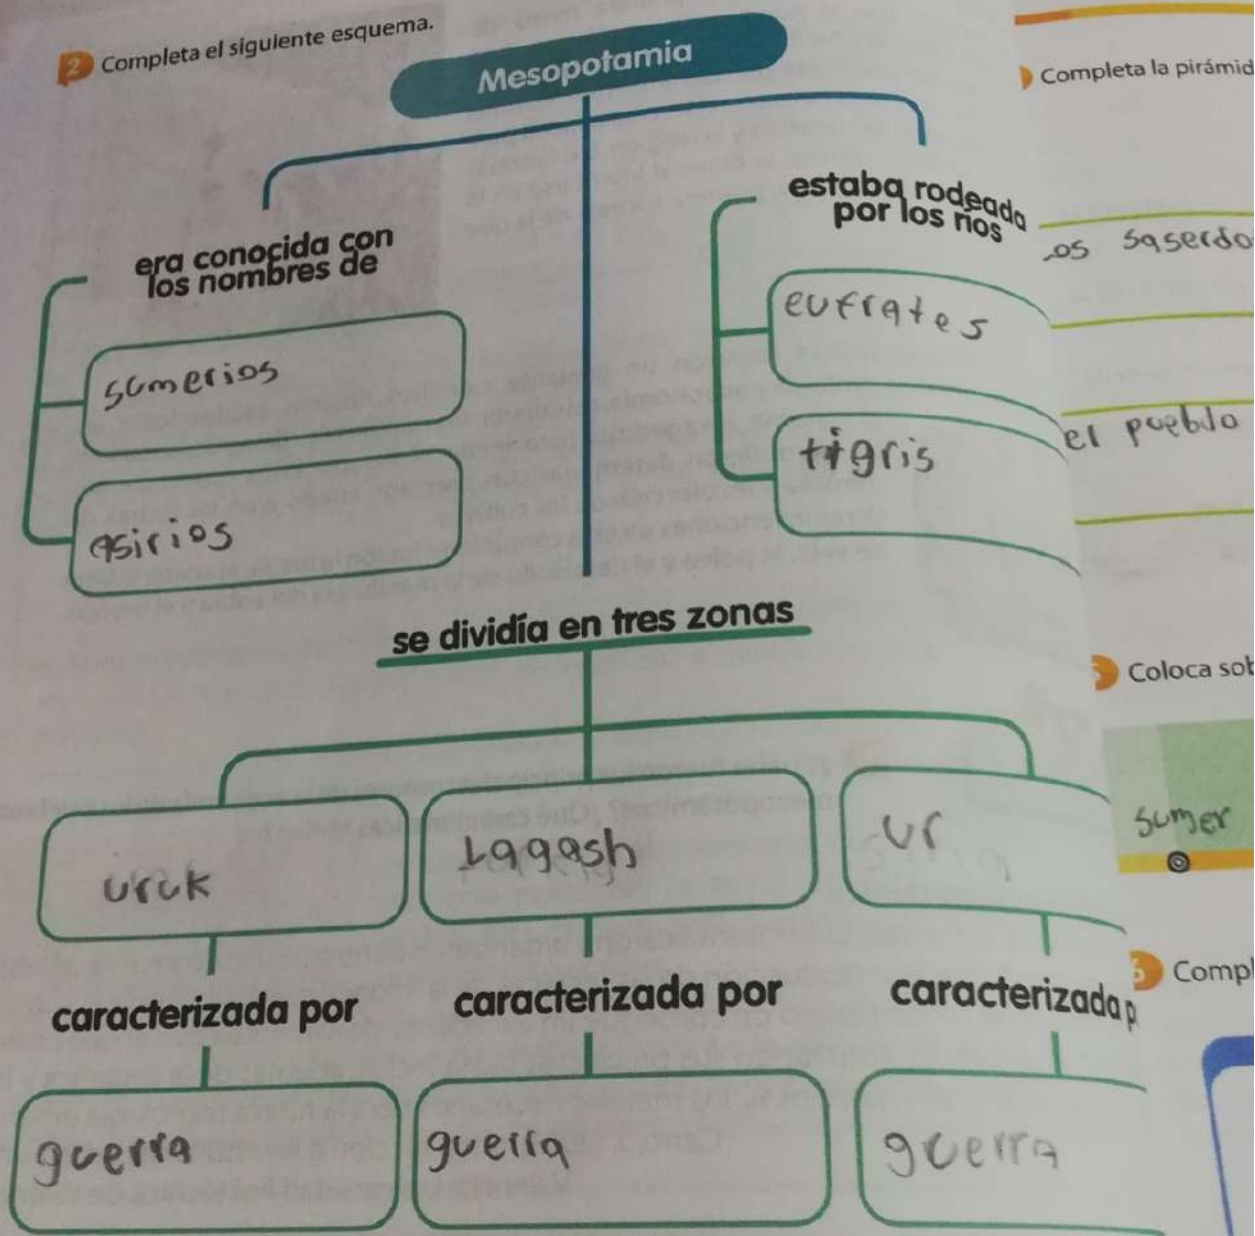 2 Completa el siguiente esquema.
Mesopotamia
era conocida con
los nombres de
sumerios
asirios
estaba rodeada
por los ríos
eufrates
tigris
se dividía en tres zonas
uruk
Lagash
ur
caracterizada por
caracterizada por
caracterizada p
guerra
guerra
guerra
Completa la pirámid
os saserdo
el pueblo
Coloca sob
sumer
6 Compl